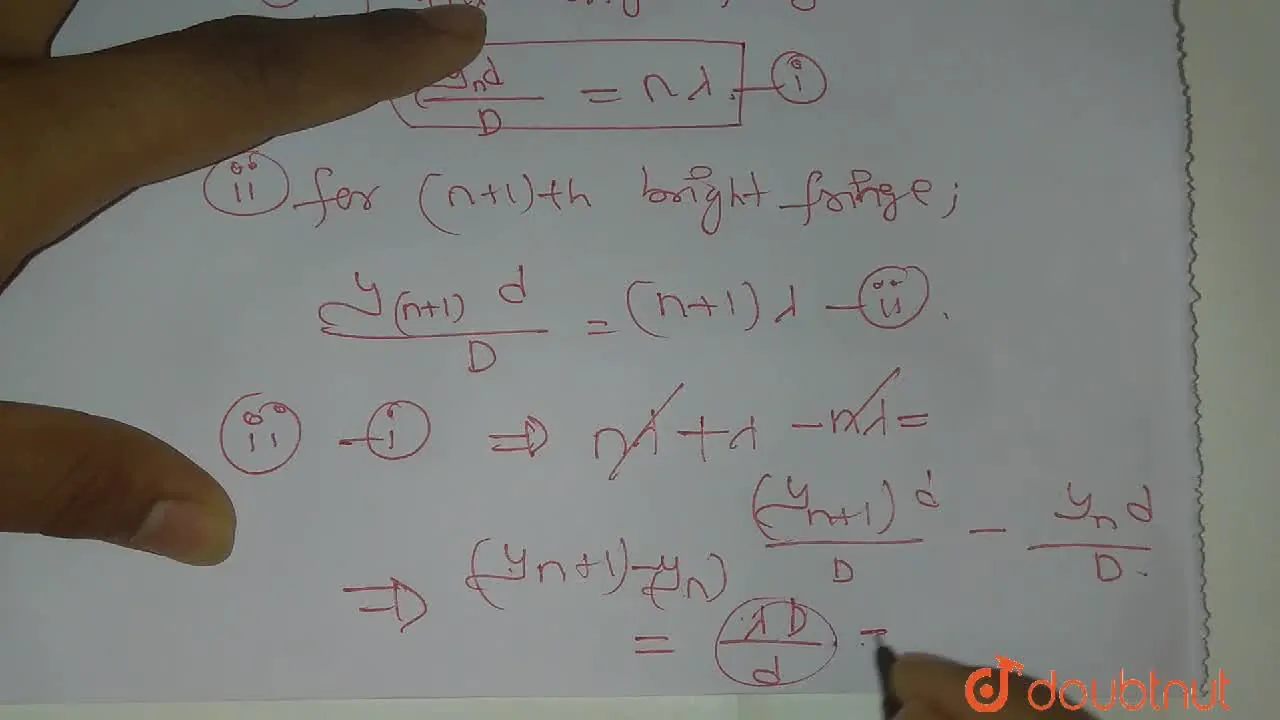 y_n d / D = nλ. — (i)
(ii) for (n+1)th bright fringe;
y_(n+1) d / D = (n+1) λ — (ii).
(ii) – (i) ⇒ nλ + λ – nλ =
(y_n+1) d / D – y_n d / D.
⇒ (y_n+1) – (y_n)
= λD / d =
doubtnut